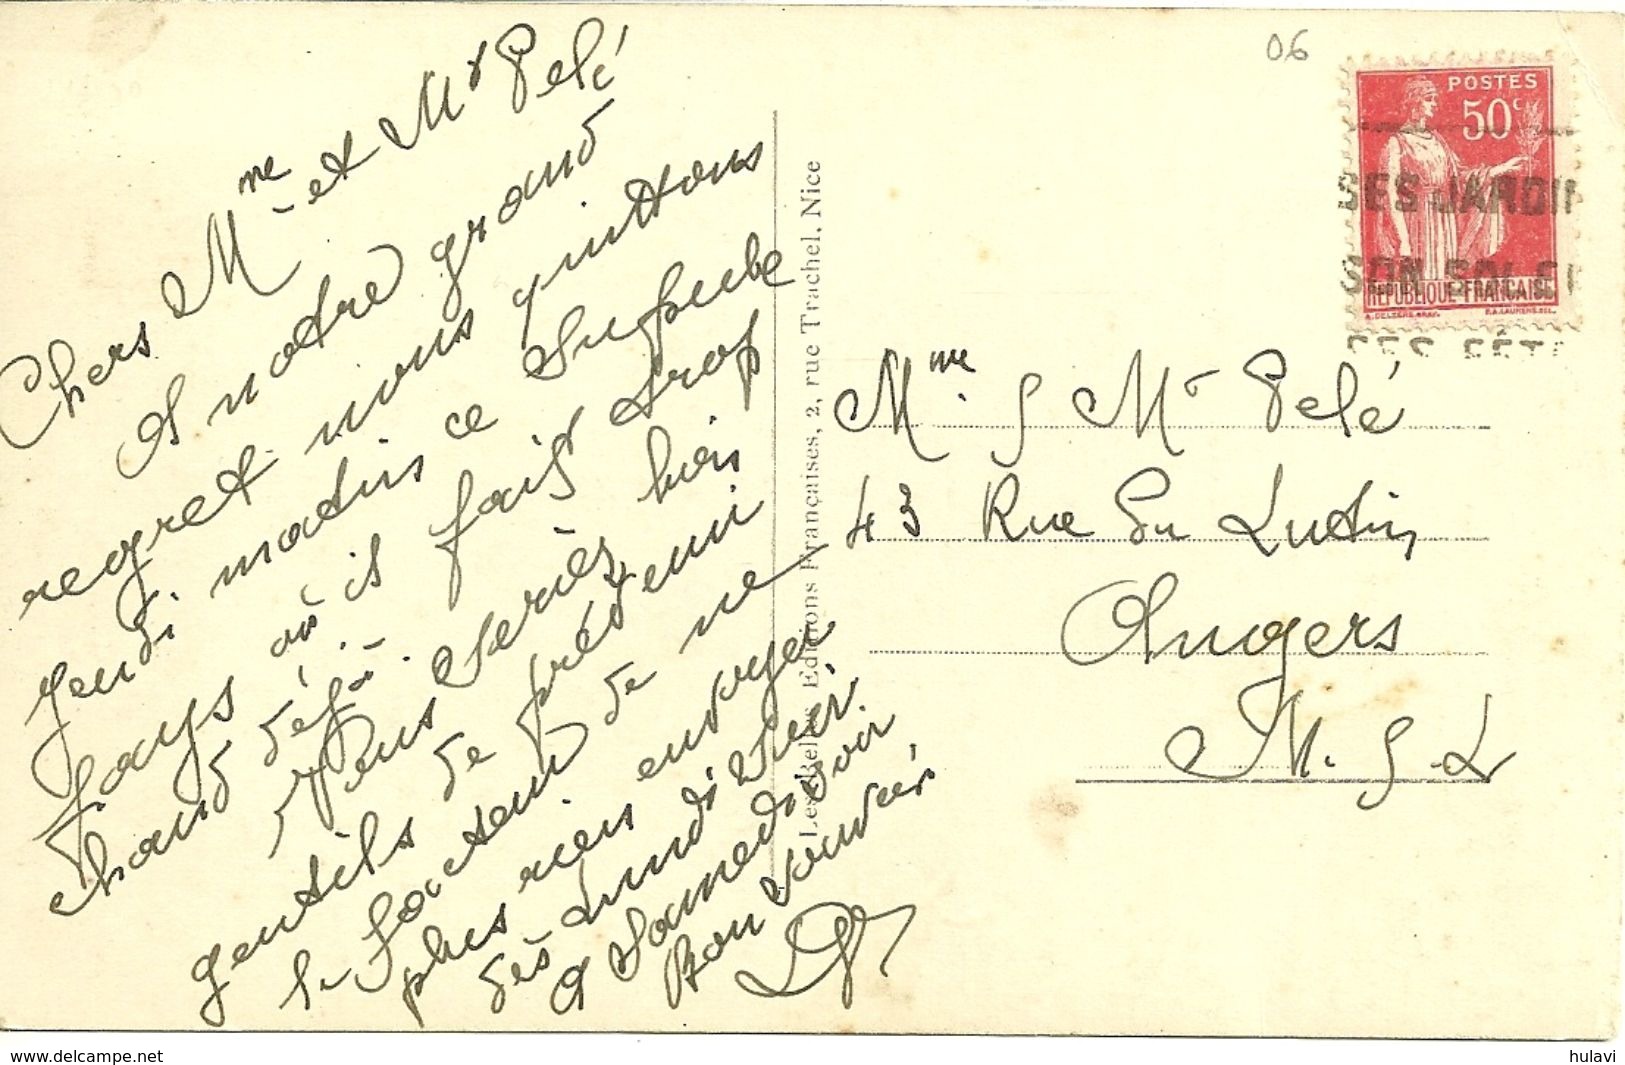 Chers Mme et Mr Pelé
A notre grand
regret nous quittons
jeudi matin ce superbe
pays où il fait trop
chaud déjà.
Vous seriez bien
gentils de prévenir
le facteur de ne
plus rien envoyer
dès Lundi soir.
A Samedi soir
Bon souvenir
06
POSTES
50c
REPUBLIQUE-FRANÇAISE
SES JARDIN
SON SOLEI
SES FÊT
Les Belles Editions Françaises, 2, rue Trachel, Nice
Mme & Mr Pelé
43 Rue du Lutin
Angers
M. & L
www.delcampe.net
hulavi